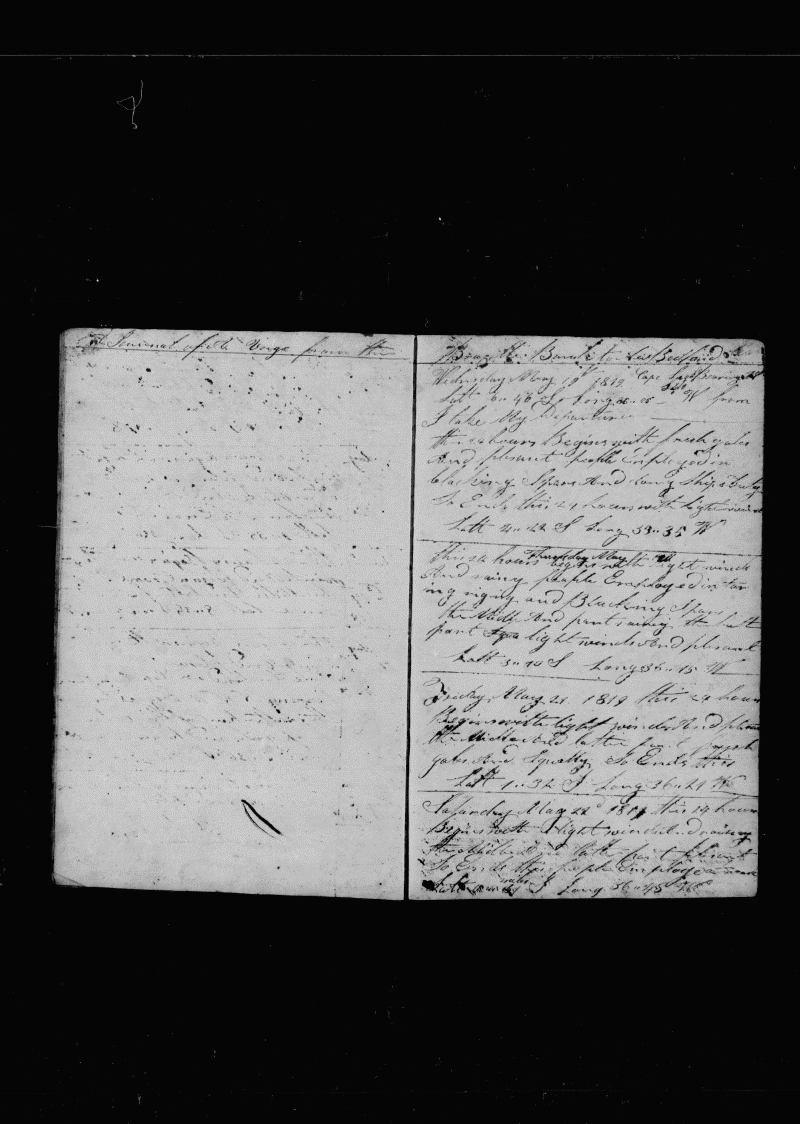 A Journal of the Voige from the
Brazil Banks to New Bedford
Wednsday May 19 1819 Cape
Latt 6 46 S Long W from
I take My Departure
this 24 hours Begins with fresh gales
And plesent people Employed in
blacking Spars And dang Ships duty
So Ends this 24 hours with light winds
Latt 4.. 22 S Long 33.. 35 W
Thursday May 20
this 24 hours begins with light winds
And rainy people Employed in tar
ing riging and Blacking Spars
the Midle And part rainy the latt
part light winds And plesent
Latt 3.. 14 S Long 36.. 15 W
Friday May 21 1819 this 24 hours
Begins with light winds And ples
the Midle And latter part fresh
gales And Squally So Ends this
Latt 1.. 32 S Long 36.. 21 W
Saturday May 22d 1819 this 24 hours
Begins with light winds And rainy
the Midle And latt part plesent
So Ends this people Employed
Latt S Long 36.. 48 W